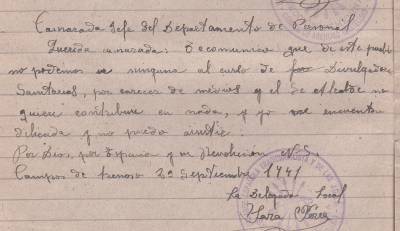 Camarada Jefe del Departamento de Personal
Querida camarada: Te comunico que de este pueblo
no podemos ir ninguna al curso de Divulgadoras
Sanitarias, por carecer de medios y el de Alcalde no
quiere contribuir en nada, y yo me encuentro
delicada y no puedo asistir.
Por Dios, por España y su Revolución N.S.
Campos de 29 Septiembre 1941
La Delegada Local
Sara Pérez